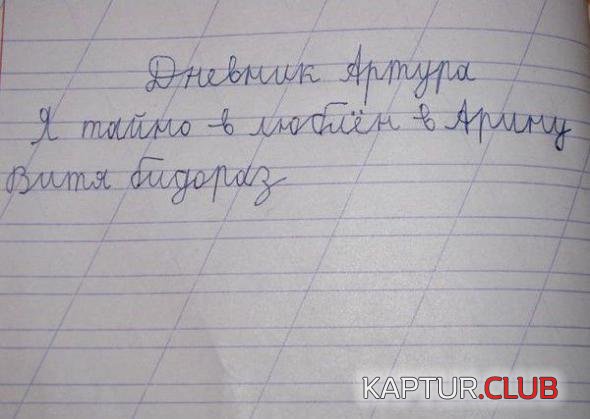 Дневник Артура
Я таймо в люблён в Арину
Витя бидораз
KAPTUR.CLUB